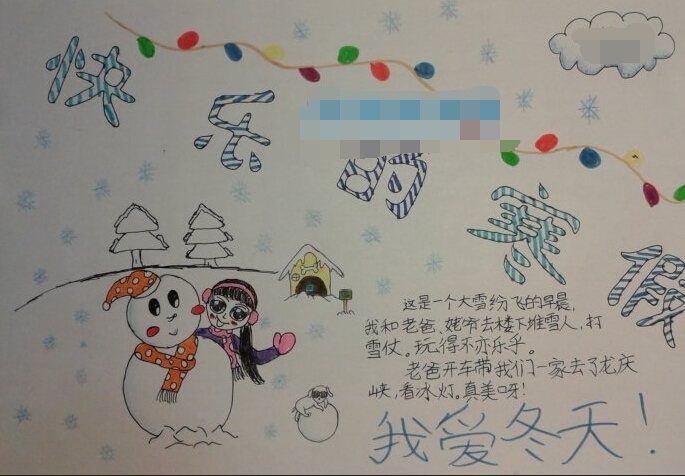 快乐的寒假
这是一个大雪纷飞的早晨,
我和老爸、姥爷去楼下堆雪人,打
雪仗。玩得不亦乐乎。
老爸开车带我们一家去了龙庆
峡,看冰灯。真美呀!
我爱冬天!